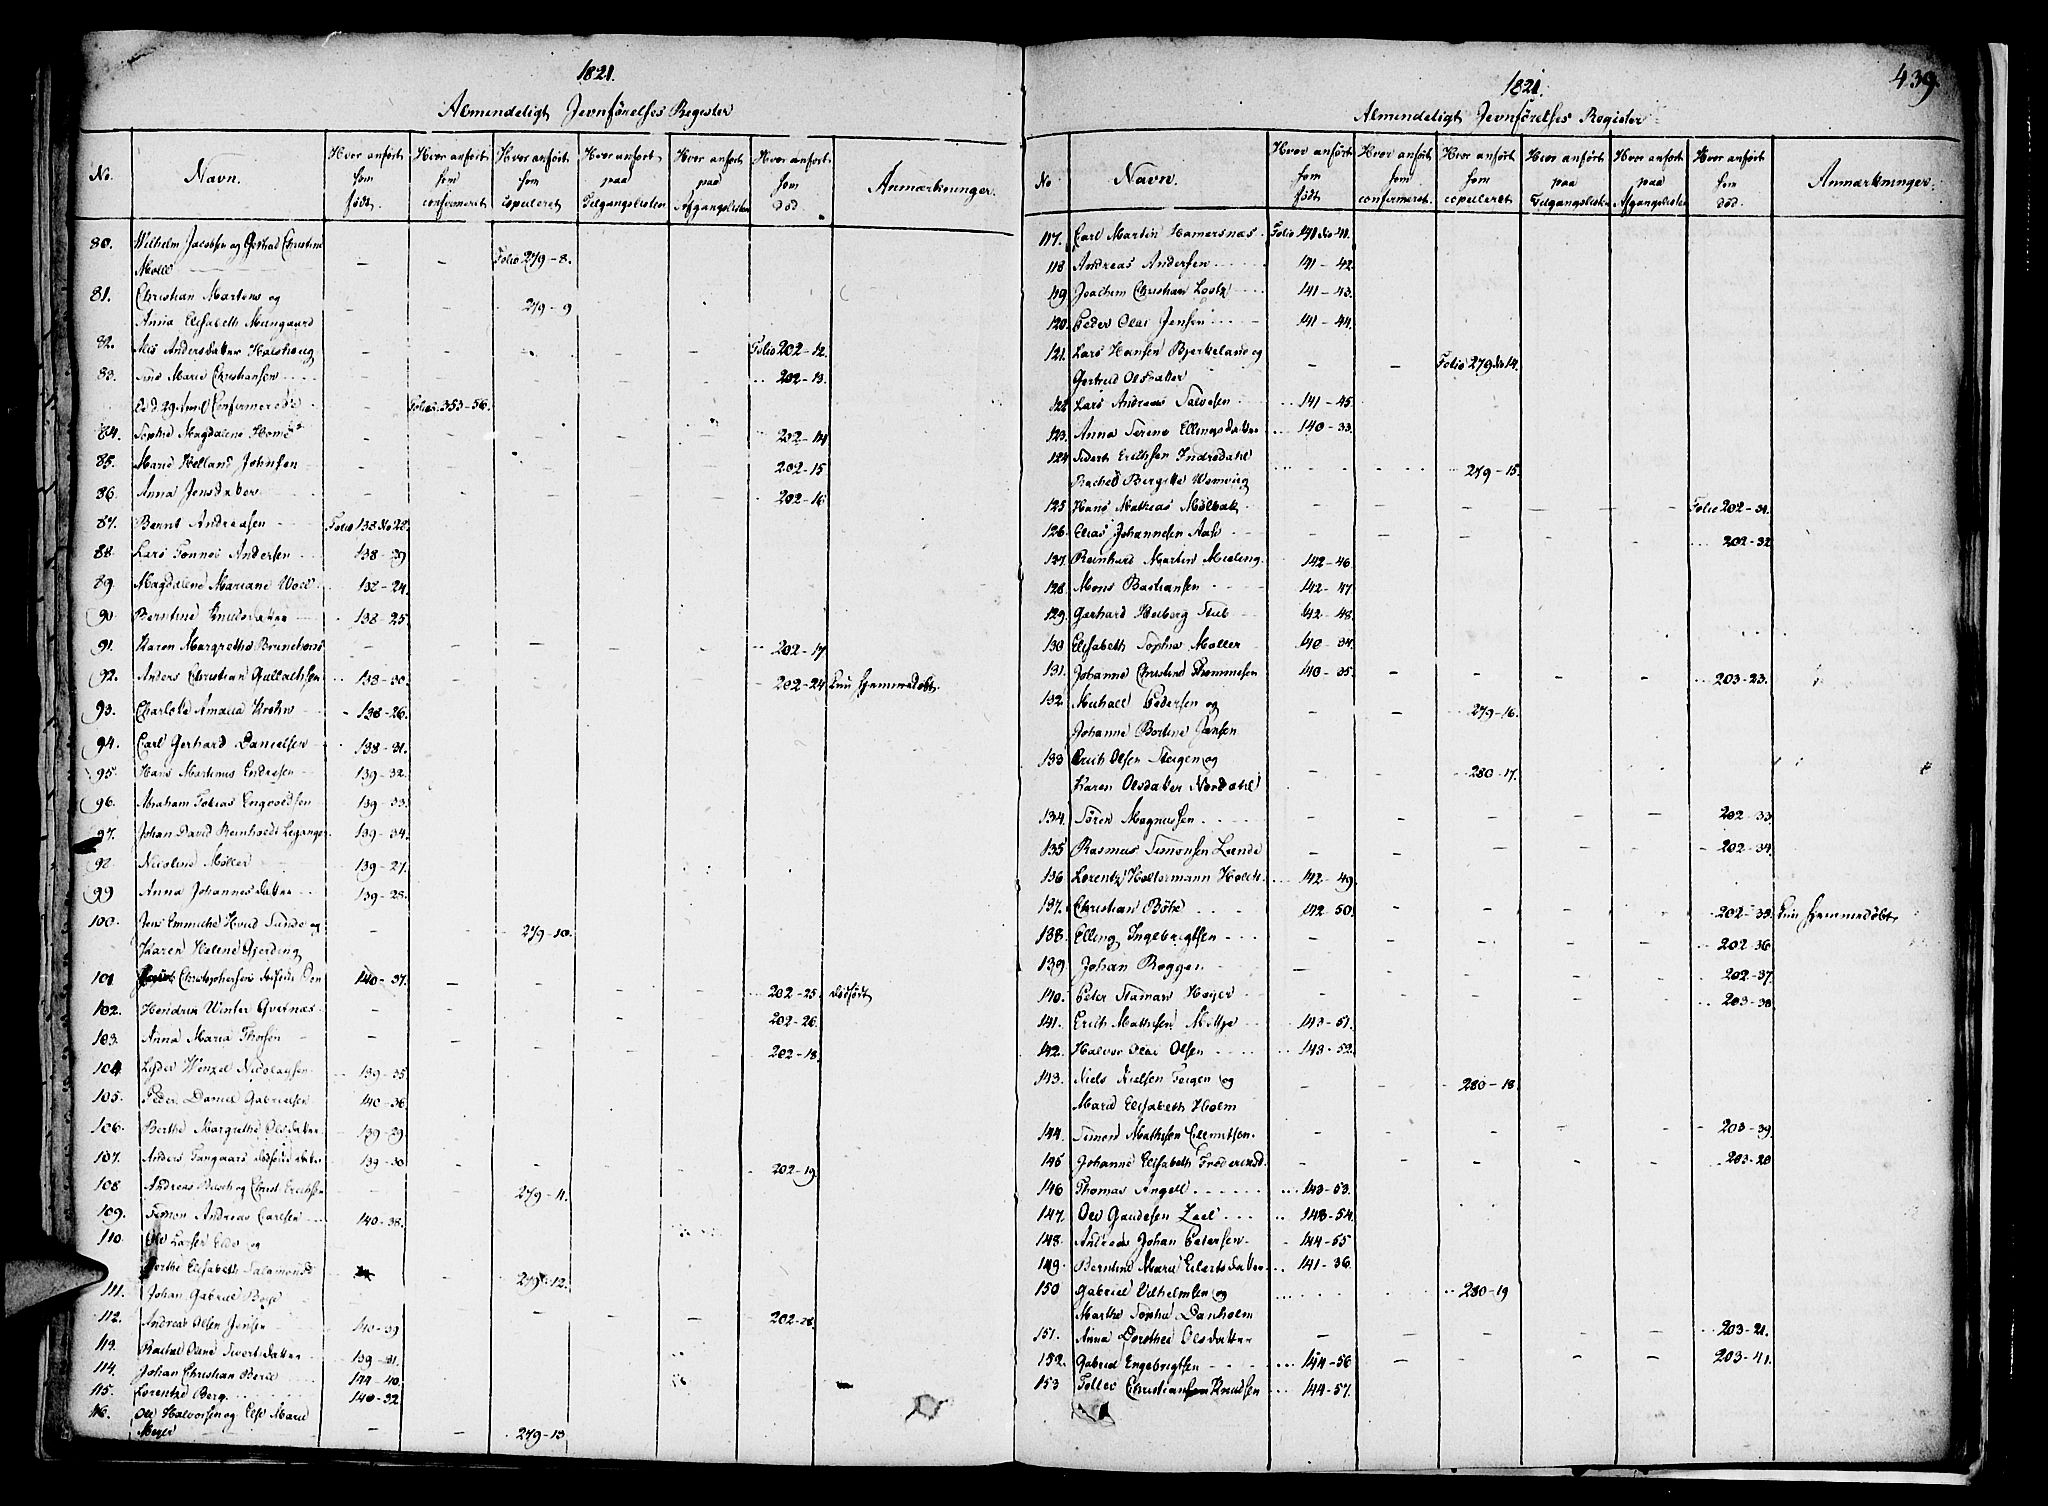 1821.
Almindeligt Jevnförelses Register
No. Navn. Hvor anfört som födt. Hvor anfört som confirmeret Hvor anfört som copuleret Hvor anfört paa Tilgangslisten Hvor anfört paa Afgangslisten Hvor anfört som död. Anmærkninger.
80. Wilhelm Jacobsen og Christine
Moll — — Folio 279-8.
81. Christian Martens og
Anna Elisabeth Mungaard — — 279-9
82. Andersdatter — — — — — Folio 202-12.
83. Marie Christiansen 202-13.
d. 29 April Confirmerede — Folio 353-56.
84. Sophie Magdalene — — — — — 202-14
85. Marie Helland Johnsen — — 202-15
86. Anna Jensdatter 202-16
87. Bernt Andreasen Folio 138 No 22.
88. Lars Tönnes Andersen 138-29
89. Magdalene Mariane Woll 138-24.
90. Berntine Knudsdatter 138-25.
91. Karen Margrethe 202-17
92. Anders Christian 138-30. — — — — 202-24 Kun hjemmedöbt.
93. Charlotte Amalia Krohn 138-26.
94. Carl Gerhard Danielsen 138-31.
95. Hans Martinus Endresen 139-32.
96. Abraham Tobias Engvoldsen 139-33.
97. Johan David Reinholdt Leganger 139-34.
98 Nicoline Möller 139-27.
99 Anna Johannesdatter 139-28.
100. Jens Emmiche Hvid Sundt og
Karen Helene Gjerding — — 279-10.
101 Christophersens dödfödte Sön 140-37. — — — — 202-25. dödfödt
102. Hendrik Winter Qvernæs — — — — — 202-26.
103. Anna Maria Thorsen — — — — — 202-18.
104 Lyder Wenzel Nicolaysen 139-35
105. Peder Daniel Gabrielsen 140-36.
106. Berthe Margrethe Olsdatter 139-29.
107. Anders dödfödte datter 139-30 — — — — 202-19.
108 Andreas Busch og Erichsen — — 279-11.
109. Simon Andreas Carlsen 140-38.
110. Ole Larsen Eide og
Berthe Elisabeth Salamonsd — 279-12.
111. Johan Gabriel Böye — — — — — 202-28.
112. Andreas Olsen Jensen 140-39
113. Rachel Oline Sivertsdatter 139-31.
114. Johan Christian Berle 144-40.
115. Lorentze Berg 140-32
116. Ole Halvorsen og Else Marie
Meyer — — 279-13
439.
1821.
Almindeligt Jevnförelses Register
No Navn. Hvor anfört som födt Hvor anfört som confirmeret. Hvor anfört som copuleret Hvor anfört paa Tilgangslisten Hvor anfört paa Afgangslisten Hvor anfört som död. Anmærkninger.
117. Carl Martin Hamersnæs Folio 141 No 41.
118 Andreas Andersen 141-42.
119 Joachim Christian Lootz 141-43.
120. Peder Olai Jensen 141-44.
121. Lars Hansen Bjerkeland og
Gertrud Olsdatter — — Folio 279 No 14.
122 Lars Andreas Salvesen 141-45.
123. Anna Serene Ellingsdatter 140-33.
124 Sivert Erichsen Indredahl
Rachel Bergitte 279-15.
125 Hans Mathias Molbak — — — — — Folio 202-31.
126. Elias Johannesen Aase — — — — — 202-32
127. Reinhard Martin 142-46
128. Mons Bastiansen 142-47
129. Gerhard Holberg Stub 142-48.
130 Elisabeth Sophia Möller 140-34.
131. Johanne Christine Thommesen 140-35 — — — — 203-23.
132. Michael Pedersen og
Johanne Bertine Jansen — — 279-16.
133 Erich Olsen Steigen og
Karen Olsdatter Nordahl — — 280-17.
134. Sören Magnussen — — — — — 202-33.
135 Rasmus Simonsen Lænde — — — — — 202-34.
136 Lorentz Holtermann Holck 142-49.
137. Christian Böhe 142-50. — — — — 202-35 Kun hjemmedöbt
138. Elling Ingebrigtsen — — — — — 202-36
139 Johan Bögger — — — — — 202-37.
140. Peter Höyer — — — — — 203-38
141. Erich Mathisen Miltje 143-51.
142. Halvor Olai Olsen 143-52.
143. Niels Nielsen og
Marie Elisabeth Holm — — 280-18
144. Simon Mathisen — — — — — 203-39
145 Johanne Elisabeth — — — — — 203-20
146 Thomas Angell 143-53.
147. Ole 143-54.
148. Andreas Johan Petersen 144-55
149. Berntine Marie Eilertsdatter 141-36.
150 Gabriel Vilhelmsen og
Marthe Sophie Danholm 280-19
151. Anna Dorothea Olsdatter — — — — — 203-21.
152. Gabriel Engebrigtsen 144-56 — — — — 203-41.
153 Christiansen Knudsen 144-57.